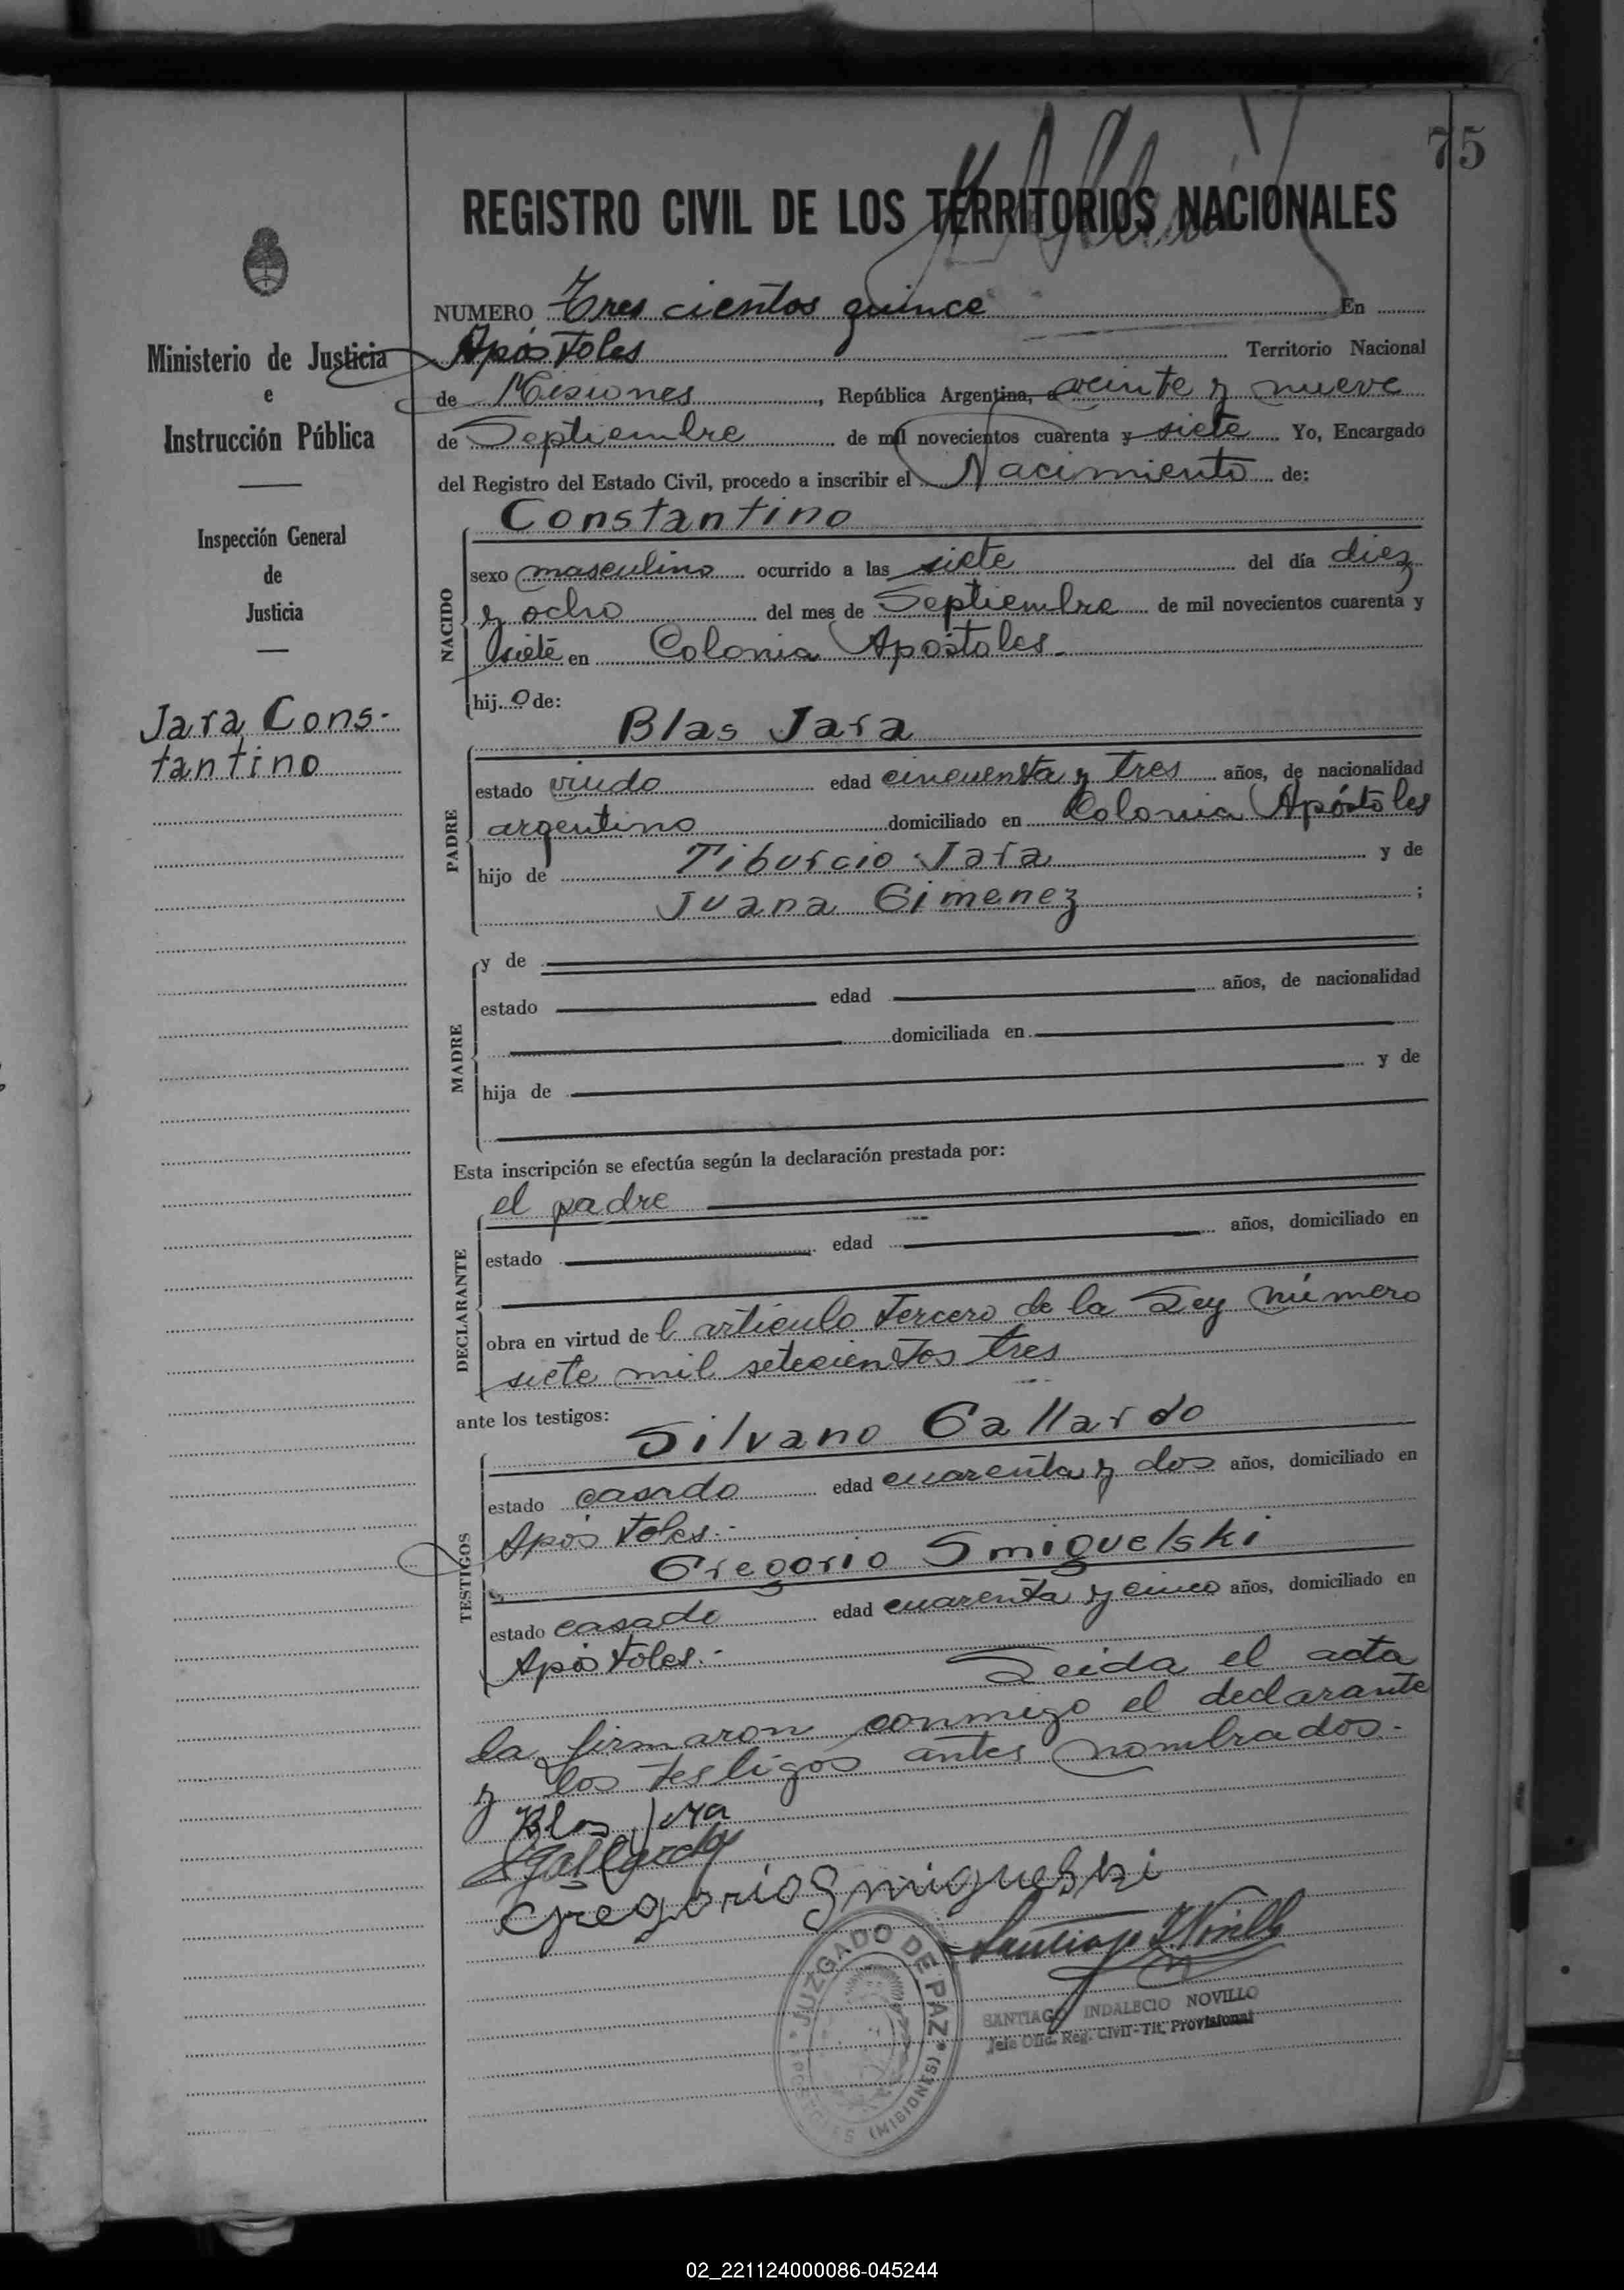 75
REGISTRO CIVIL DE LOS TERRITORIOS NACIONALES
Ministerio de Justicia
e
Instrucción Pública
Inspección General
de
Justicia
Jara Cons-
tantino
NUMERO Tres cientos quince En
Apóstoles Territorio Nacional
de Misiones, República Argentina, a veinte y nueve
de Septiembre de mil novecientos cuarenta y siete Yo, Encargado
del Registro del Estado Civil, procedo a inscribir el Nacimiento de:
Constantino
NACIDO
sexo masculino ocurrido a las siete del día diez
y ocho del mes de Septiembre de mil novecientos cuarenta y
siete en Colonia Apóstoles.
hij o de:
Blas Jara
PADRE
estado viudo edad cincuenta y tres años, de nacionalidad
argentino domiciliado en Colonia Apóstoles
hijo de Tiburcio Jara y de
Juana Gimenez ;
MADRE
y de
estado edad años, de nacionalidad
domiciliada en
hija de y de
Esta inscripción se efectúa según la declaración prestada por:
el padre
DECLARANTE
estado edad años, domiciliado en
obra en virtud de l artículo tercero de la Ley número
siete mil setecientos tres
ante los testigos:
Silvano Gallardo
TESTIGOS
estado casado edad cuarenta y dos años, domiciliado en
Apóstoles.-
Gregorio Smiguelski
estado casado edad cuarenta y cinco años, domiciliado en
Apóstoles.-
Leida el acta
la firmaron conmigo el declarante
y los testigos antes nombrados.-
Blas Jara
SGallardo
Gregorio Smiguelski
Santiago I. Novillo
JUZGADO DE PAZ
APOSTOLES (MISIONES)
SANTIAGO INDALECIO NOVILLO
Jefe Ofic. Reg. Civil-Tit. Provisional
02_221124000086-045244